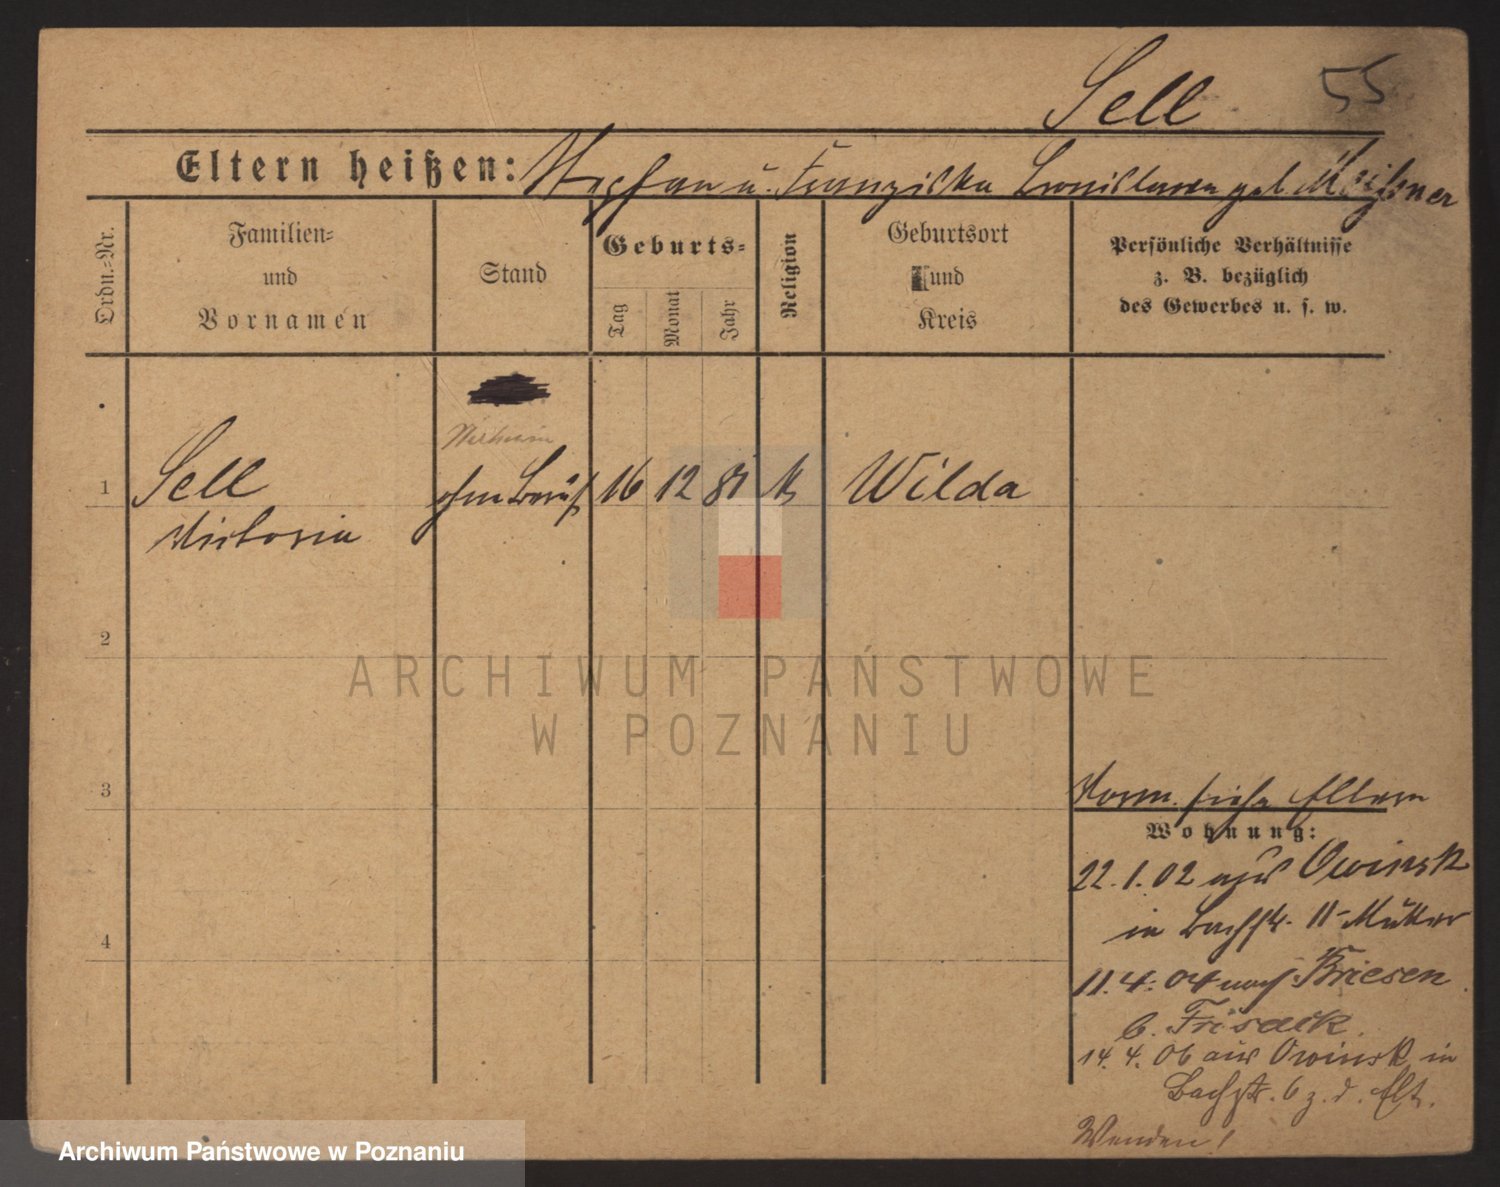 Sell 55
Eltern heißen: Stephan u. Franziska Bronislawa geb. Meißner
Ordn.-Nr.
Familien-
und
Vornamen
Stand
Geburts-
Tag
Monat
Jahr
Religion
Geburtsort
und
Kreis
Persönliche Verhältnisse
z. B. bezüglich
des Gewerbes u. s. w.
1
Sell
Victoria
ohne Beruf
16 12 81 k
Wilda
2
3
4
Vorm. siehe Eltern
Wohnung:
22.1.02 aus Owinsk
in Bachstr. 11 Mutter
11.4.04 nach Briesen
b. Frisack
14.4.06 aus Owinsk in
Bachstr. 6 z. d. Elt.
Wenden!
ARCHIWUM PAŃSTWOWE
W POZNANIU
Archiwum Państwowe w Poznaniu